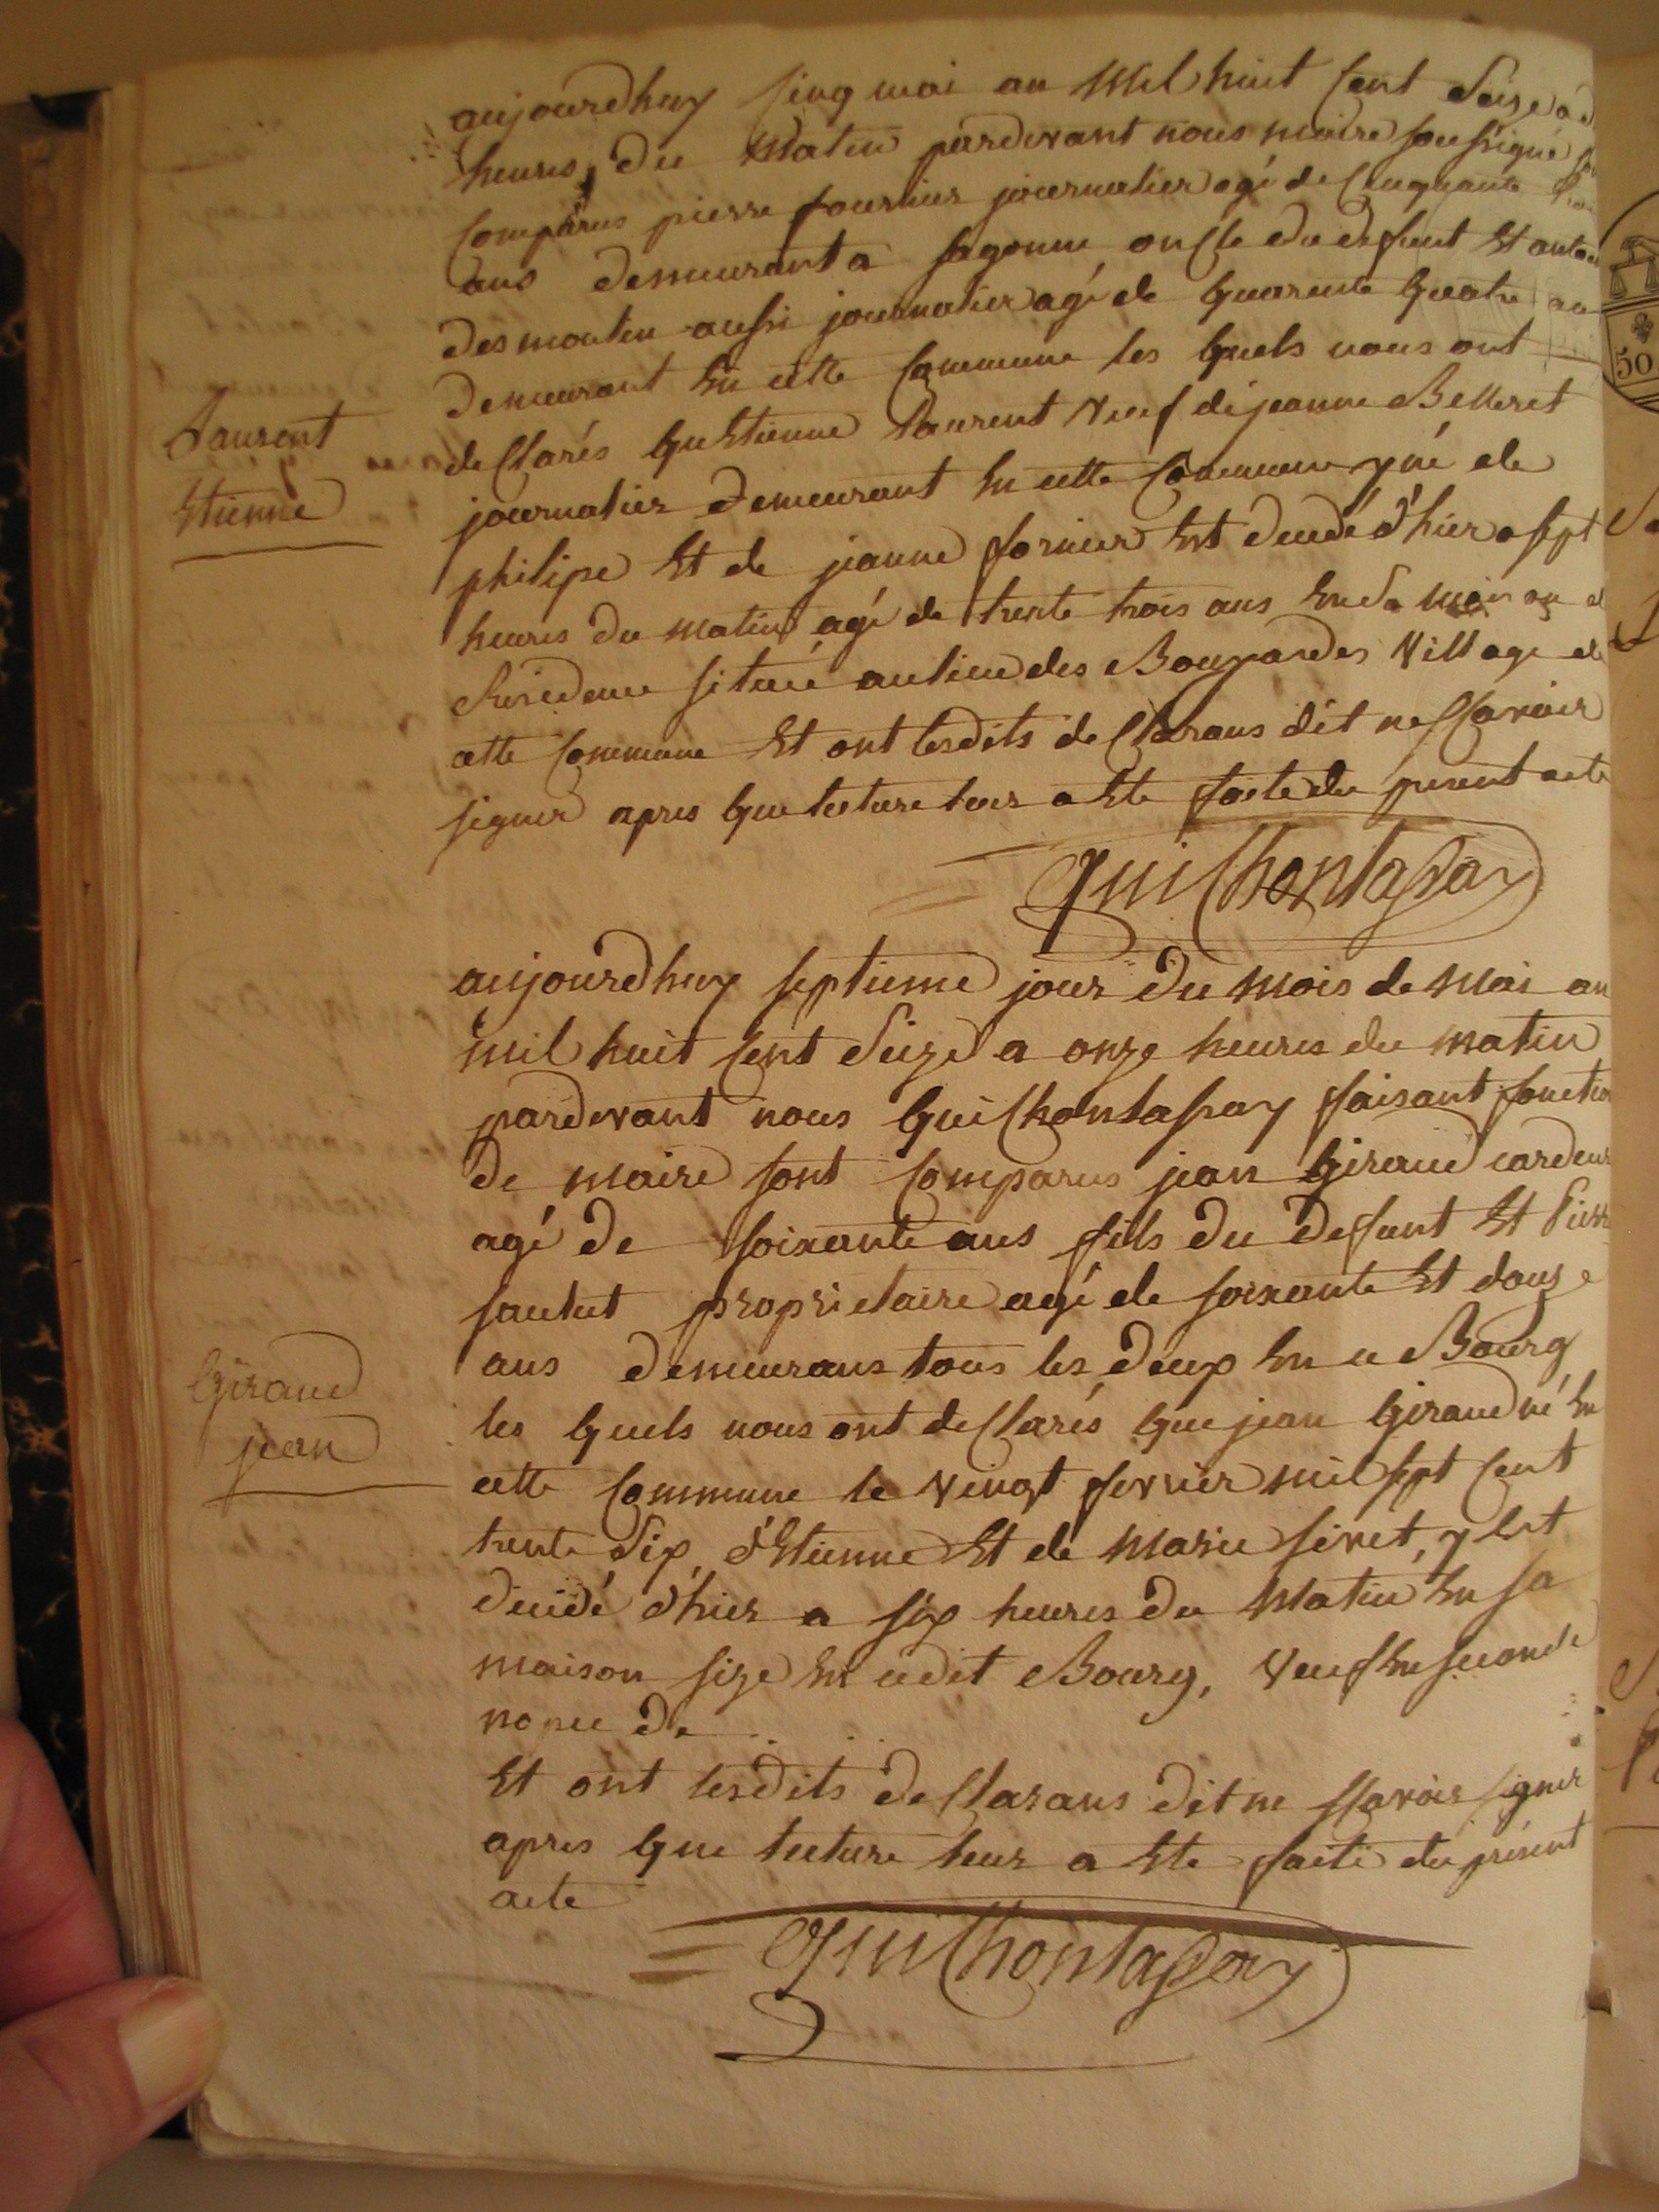 aujourdhuy sinq mai an mil huit sent seize a
heures du matin pardevant nous maire soussigné
comparus pierre fournier journalier agé de cinquante
ans demeurant a sagonne oncle du defunt et
desmoulin aussi journalier agé de quarente quatre an
demeurant en cette commune les quels nous ont
declarés qu'etienne Laurent veuf de jeanne Belleret
Laurent
Etienne
journalier demeurant en cette commune y né de
philipe et de jeanne fornier est decedé d'hier a sept
heures du matin agé de trente trois ans en sa maison
Residence située au lieu des Bougardes village de
cette commune et ont lesdits declarans dit ne scavoir
signer apres que lecture leur a ete faite du present acte
Guichontassay
aujourdhuy septieme jour du mois de mai an
mil huit sent seize a onze heures du matin
pardevant nous Guichontassay faisant fonction
de maire sont comparus jean Giraud cardeur
agé de soixante ans fils du defunt et Pierre
sautut proprietaire agé de soixante et douze
ans demeurans tous les deux en ce Bourg
Giraud
jean
les quels nous ont declarés que jean Giraud né en
cette commune le vingt fevrier mil sept cent
trente six, d'Etienne et de Marie siret, y est
decedé d'hier a six heures du matin en sa
maison size en cedit Bourg, veuf en seconde
nopce de
et ont lesdits declarans dit ne scavoir signer
apres que lecture leur a ete faite du présent
acte
Guichontassay
50